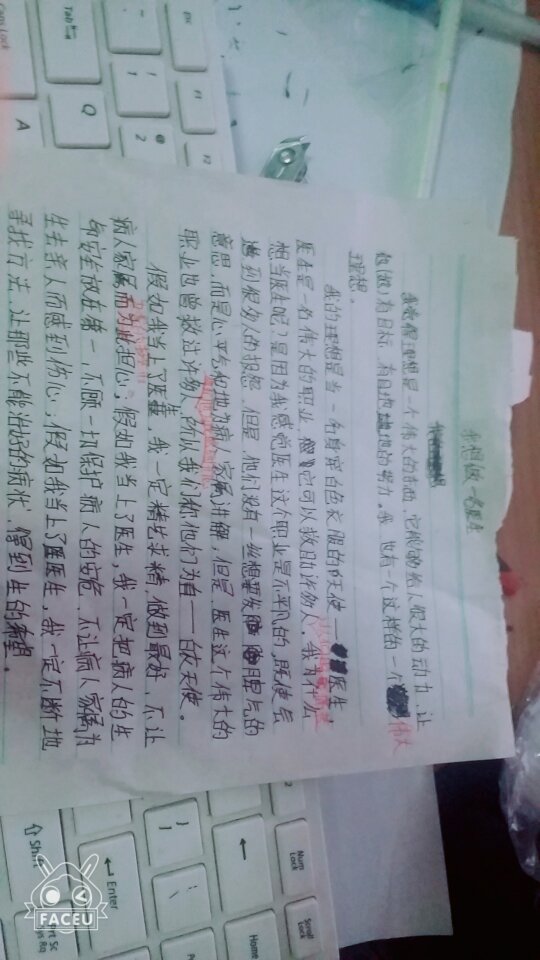 我想做一名医生
我觉得理想是一个伟大的东西,它能够给人很大的动力,让
我们做有目标,有目地地的努力。我,也有一个这样的一个伟大
理想。
我的理想是当一名身穿白色衣服的天使——医生
医生是一名伟大的职业,它可以救助许多人,我为什么
想当医生呢?是因为我感觉医生这个职业是不平凡的,既使会
遭到很多人的报怨,但是,他们没有一丝想要发脾气的
意思,而是心平气和地为病人家属讲解,但是,医生这个伟大的
职业也曾救过许多人,所以我们称他们为白——白衣天使。
假如我当上了医生,我一定精艺求精,做到最好,不让
病人家属而为此担心,假如我当上了医生,我一定把病人的生
命安全放在第一,不顾一切保护病人的安危,不让病人家属为
失去亲人而感到伤心,假如我当上了医生,我一定不断地
寻找方法,让那些不能治好的病状,得到生的希望。
Caps Lock
Tab
Q
A
2
F1
F2
Enter
Shift
Home
Num Lock
Scroll Lock
FACEU